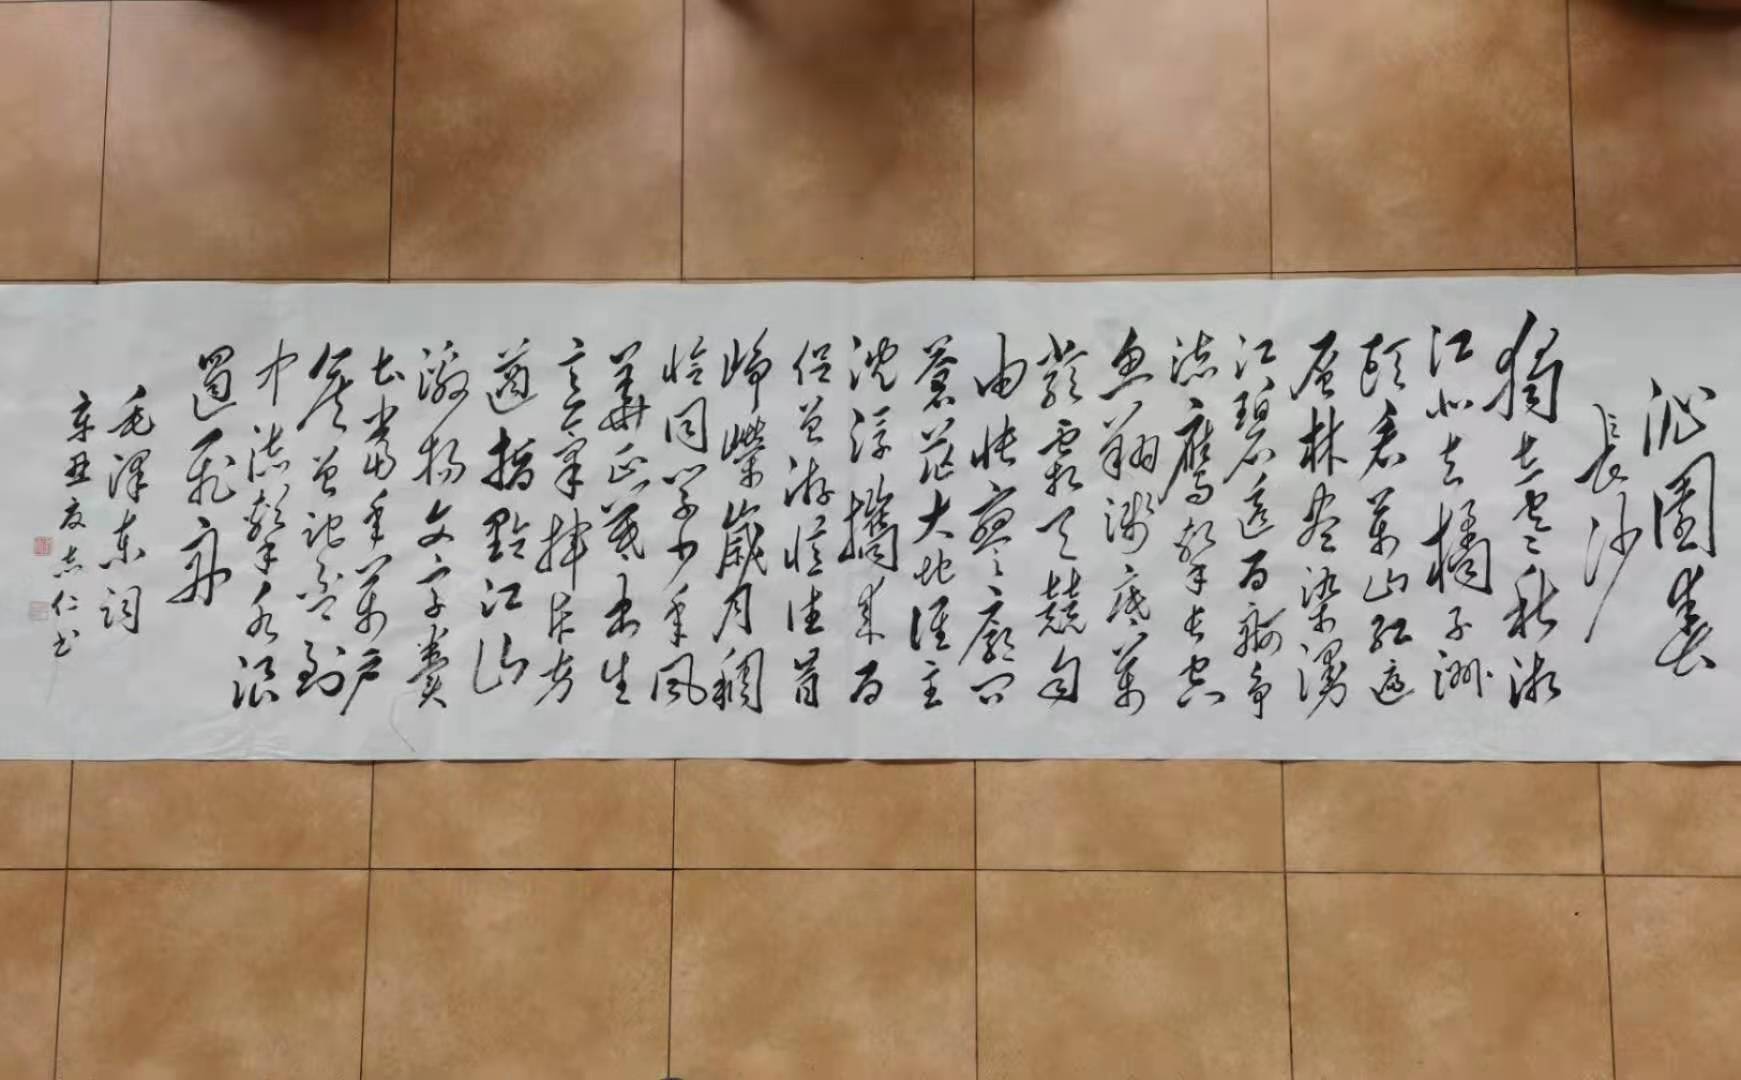 沁园春
长沙
独立寒秋湘
江北去橘子洲
头看万山红遍
层林尽染漫
江碧透百舸争
流鹰击长空
鱼翔浅底万
类霜天竞自
由怅寥廓问
苍茫大地谁主
沉浮携来百
侣曾游忆往昔
峥嵘岁月稠
恰同学少年风
华正茂书生
意气挥斥方
遒指点江山
激扬文字粪
土当年万户
侯曾记否到
中流击水浪
遏飞舟
毛泽东词
辛丑夏志仁书